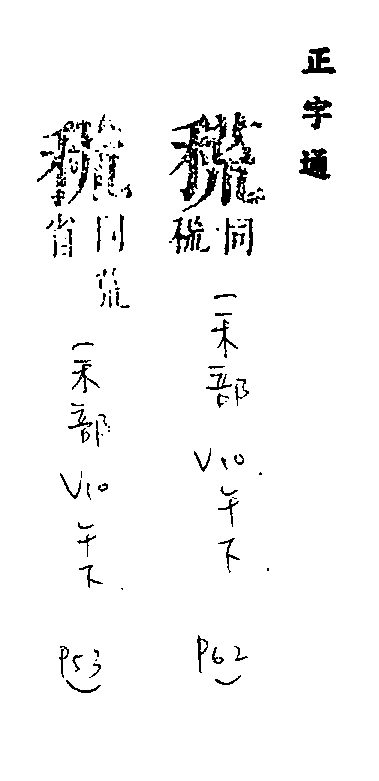 正字通
同
一禾部 V10. 午下.
P62
同
省
一禾部 V10 午下.
P53